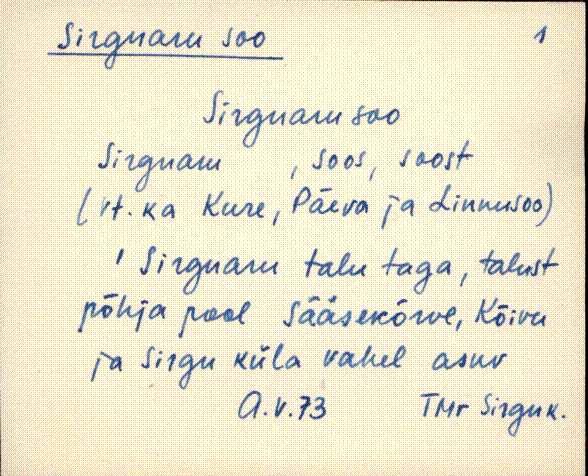 Sirguaru soo 1
Sirguaru soo
Sirguaru , soos, soost
(vt. ka Kure, Päeva ja Linnusoo)
' Sirguaru talu taga, talust
põhja pool Sääsekõrve, Kõivu
ja Sirgu küla vahel asuv
A.V.73 TMr Sirgu k.